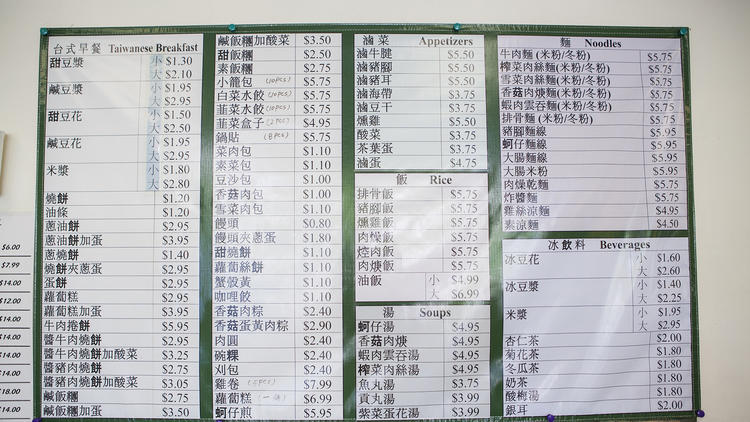 台式早餐 Taiwanese Breakfast
甜豆漿 小 $1.30
大 $2.10
鹹豆漿 小 $1.95
大 $2.95
甜豆花 小 $1.50
大 $2.50
鹹豆花 小 $1.95
大 $2.95
米漿 小 $1.80
大 $2.80
燒餅 $1.20
油條 $1.20
蔥油餅 $2.95
蔥油餅加蛋 $3.95
蔥燒餅 $1.40
燒餅夾蔥蛋 $2.95
蛋餅 $2.95
蘿蔔糕 $2.95
蘿蔔糕加蛋 $3.95
牛肉捲餅 $5.95
醬牛肉燒餅 $2.95
醬牛肉燒餅加酸菜 $3.25
醬豬肉燒餅 $2.75
醬豬肉燒餅加酸菜 $3.05
鹹飯糰 $2.75
鹹飯糰加蛋 $3.50
鹹飯糰加酸菜 $3.50
甜飯糰 $2.50
素飯糰 $2.75
小籠包 (10PCS) $5.75
白菜水餃 (10PCS) $5.75
韭菜水餃 (10PCS) $5.75
韭菜盒子 (2PCS) $4.95
鍋貼 (8PCS) $5.75
菜肉包 $1.10
素菜包 $1.10
豆沙包 $1.00
香菇肉包 $1.00
雪菜肉包 $1.10
饅頭 $0.80
饅頭夾蔥蛋 $1.80
甜燒餅 $1.10
蘿蔔絲餅 $1.10
蟹殼黃 $1.10
咖哩餃 $1.10
香菇肉粽 $2.40
香菇蛋黃肉粽 $2.90
肉圓 $2.40
碗粿 $2.40
刈包 $2.40
雞卷 $7.99
蘿蔔糕 $6.99
蚵仔煎 $5.95
滷菜 Appetizers
滷牛腱 $5.50
滷豬腳 $5.50
滷豬耳 $5.50
滷海帶 $3.75
滷豆干 $3.75
燻雞 $5.50
酸菜 $3.75
茶葉蛋 $3.75
滷蛋 $4.75
飯 Rice
排骨飯 $5.75
豬腳飯 $5.75
燻雞飯 $5.75
肉燥飯 $5.75
焢肉飯 $5.75
肉焿飯 $5.75
油飯 小 $4.99
大 $6.99
湯 Soups
蚵仔湯 $4.95
香菇肉焿 $4.95
蝦肉雲吞湯 $4.95
榨菜肉絲湯 $4.95
魚丸湯 $3.75
貢丸湯 $3.99
紫菜蛋花湯 $3.99
麵 Noodles
牛肉麵(米粉/冬粉) $5.75
榨菜肉絲麵(米粉/冬粉) $5.75
雪菜肉絲麵(米粉/冬粉) $5.75
香菇肉焿麵(米粉/冬粉) $5.75
蝦肉雲吞麵(米粉/冬粉) $5.75
排骨麵 (米粉/冬粉) $5.75
豬腳麵線 $5.95
蚵仔麵線 $5.95
大腸麵線 $5.95
大腸米粉 $5.95
肉燥乾麵 $5.75
炸醬麵 $5.75
雞絲涼麵 $4.95
素涼麵 $4.50
冰飲料 Beverages
冰豆花 小 $1.60
大 $2.60
冰豆漿 小 $1.40
大 $2.25
米漿 小 $1.95
大 $2.95
杏仁茶 $2.00
菊花茶 $1.80
冬瓜茶 $1.80
奶茶 $1.80
酸梅湯 $1.80
銀耳 $2.00
$6.00
$7.99
$14.00
$12.00
$14.00
$14.00
$14.00
$18.00
$14.00